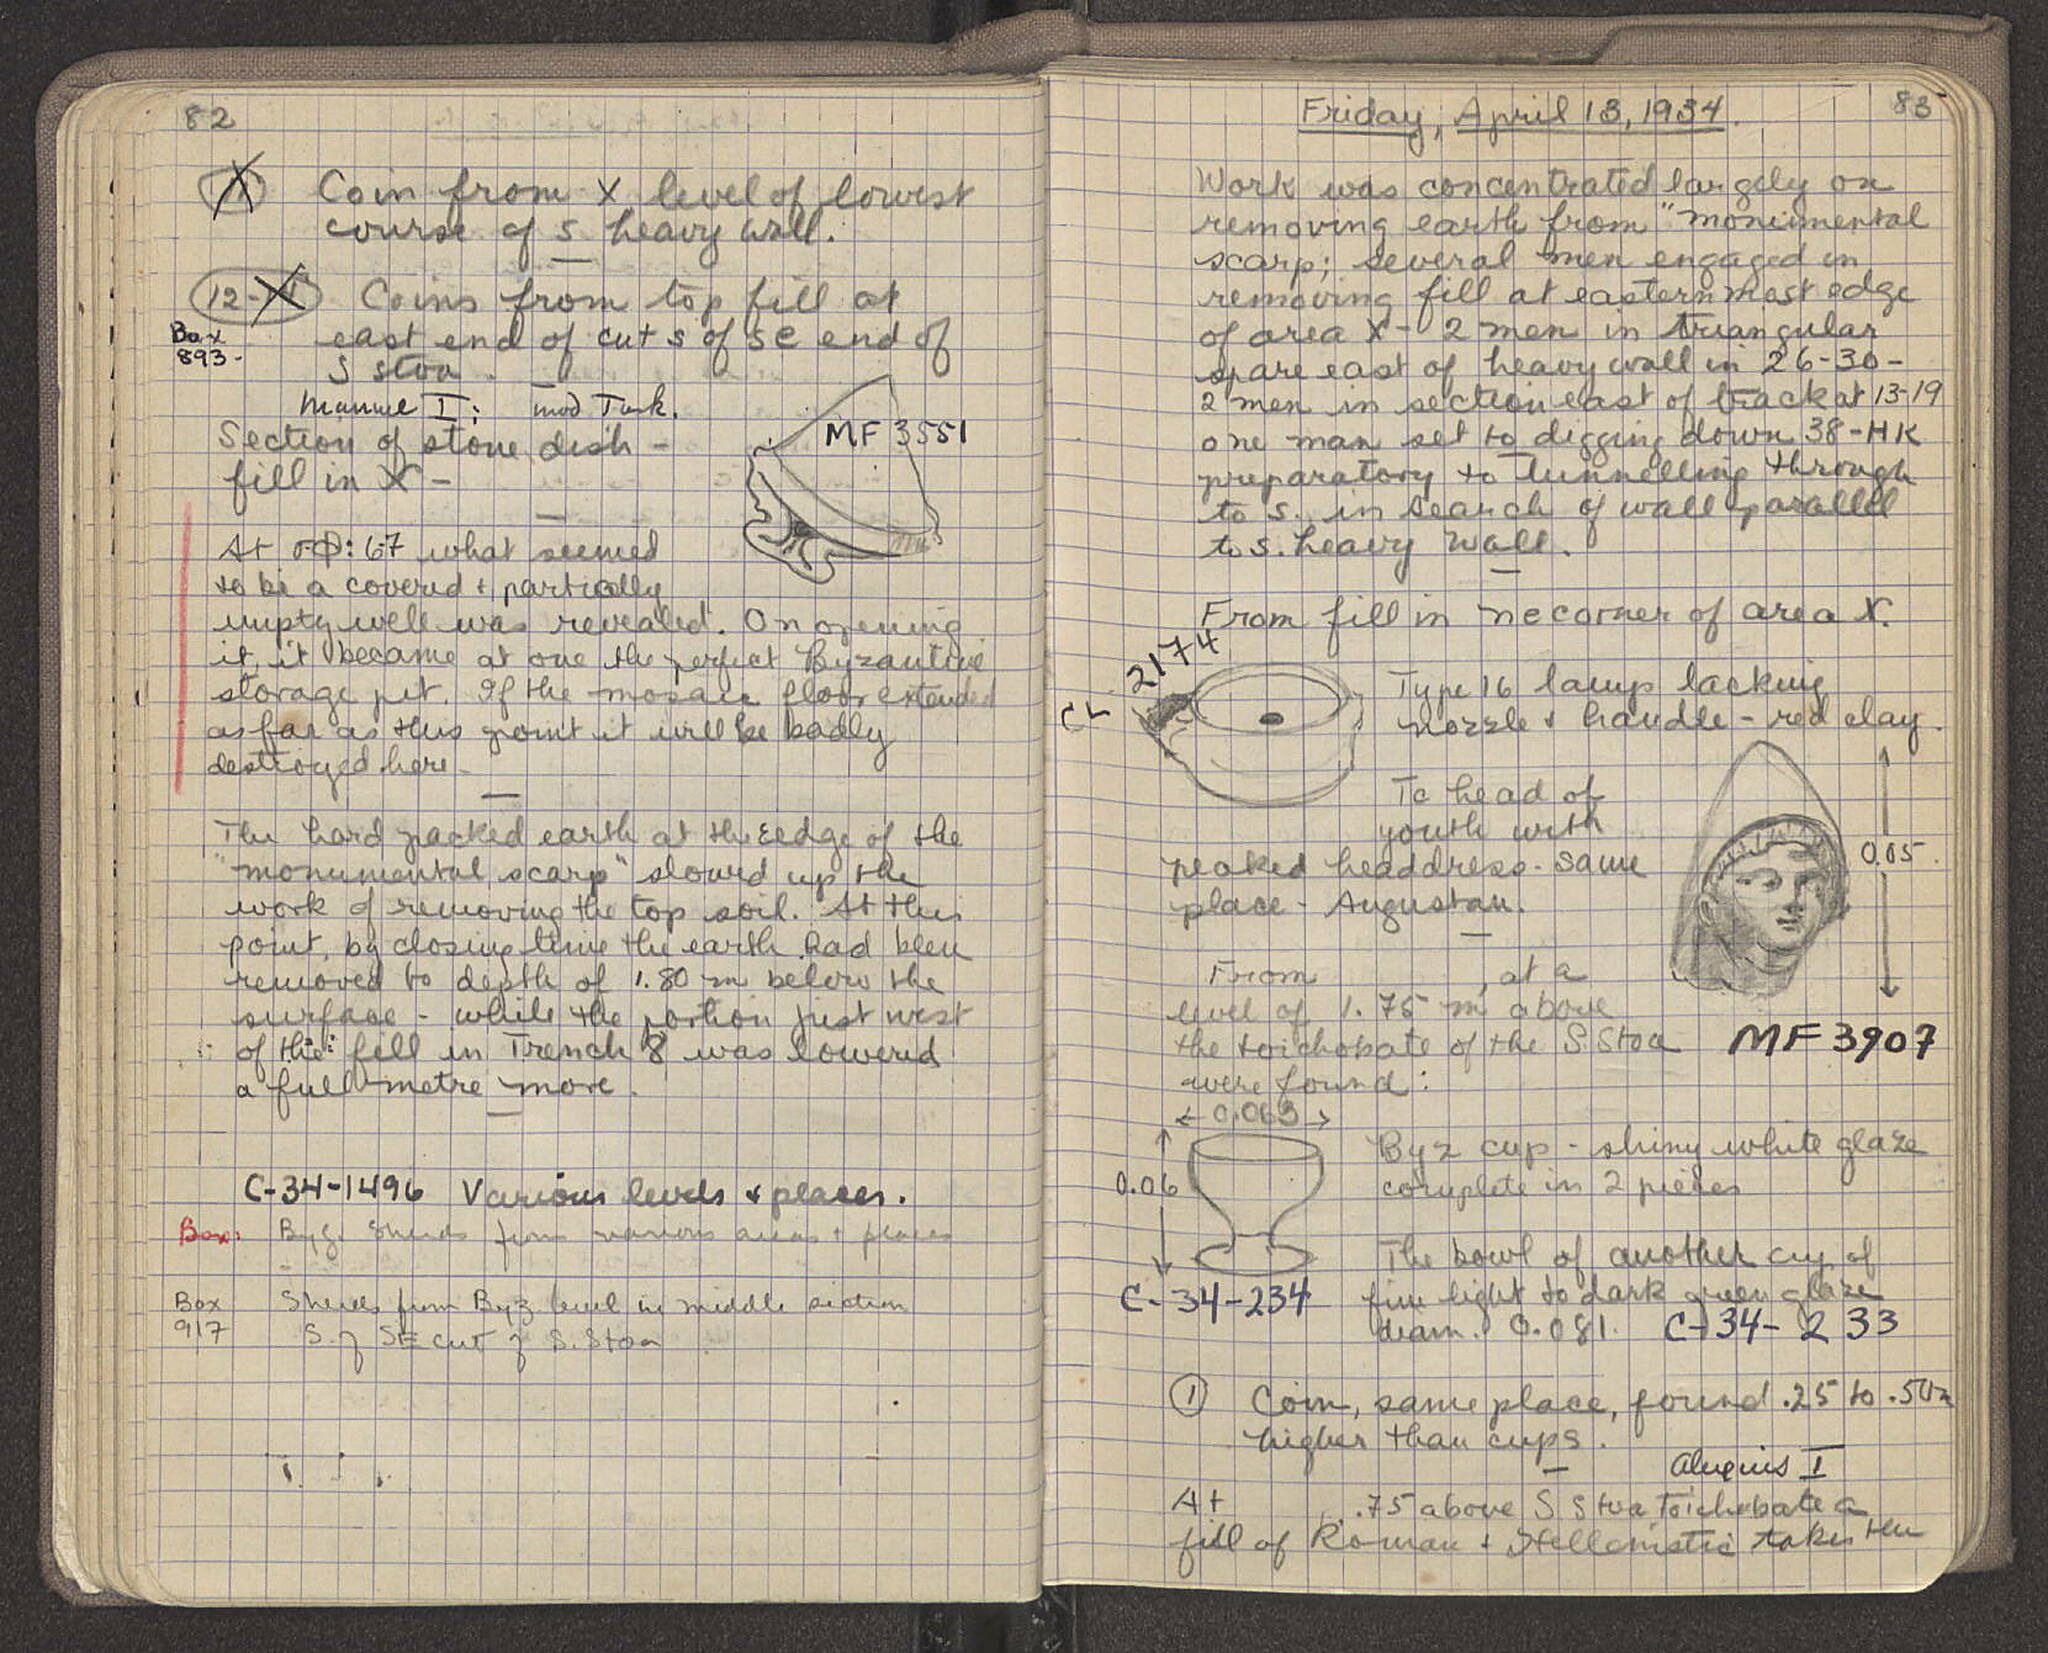 82
Coin from X level of lowest
course of S. heavy wall.
12- Coins from top fill at
Box
893-
east end of cut S of SE end of
S Stoa.
Manuel I; mod Turk.
Section of stone dish -
fill in X -
MF 3551
At σ-φ: 67 what seemed
to be a covered + partically
empty well was revealed. On opening
it, it became at one the perfect Byzantine
storage pit. If the mosaic floor extended
as far as this point it will be badly
destroyed here -
The hard packed earth at the E edge of the
"monumental scarp" slowed up the
work of removing the top soil. At this
point, by closing time the earth had been
removed to depth of 1.80 m below the
surface - while the portion just west
of the fill in Trench 8 was lowered
a full metre more.
C-34-1496 Various levels & places.
Box: Byz. Sherds from various areas + places
Box
917
Sherds from Byz level in middle section
S. of SE cut of S. Stoa
83
Friday, April 13, 1934.
Work was concentrated largely on
removing earth from "monumental
scarp; several men engaged in
removing fill at easternmost edge
of area X - 2 men in triangular
spare east of heavy wall in 26-30-
2 men in section east of track at 13-19
one man set to digging down 38-HK
preparatory to tunnelling through
to S. in search of wall parallel
to S. heavy wall.
From fill in NE corner of area X.
CL 2174
Type 16 lamp lacking
nozzle & handle - red clay.
Tc head of
youth with
peaked headdress - same
place - Augustan.
0.05.
MF 3907
From , at a
level of 1.75 m above
the toichobate of the S. Stoa
were found:
0.063
0.06
Byz cup - shiny white glaze
complete in 2 pieces
C-34-234
The bowl of another cup of
fine light to dark green glaze
diam. 0.081. C-34-233
1 Coin, same place, found .25 to .50m
higher than cups.
Alexius I
At .75 above S Stoa Toichobate a
fill of Roman + Hellenistic takes the